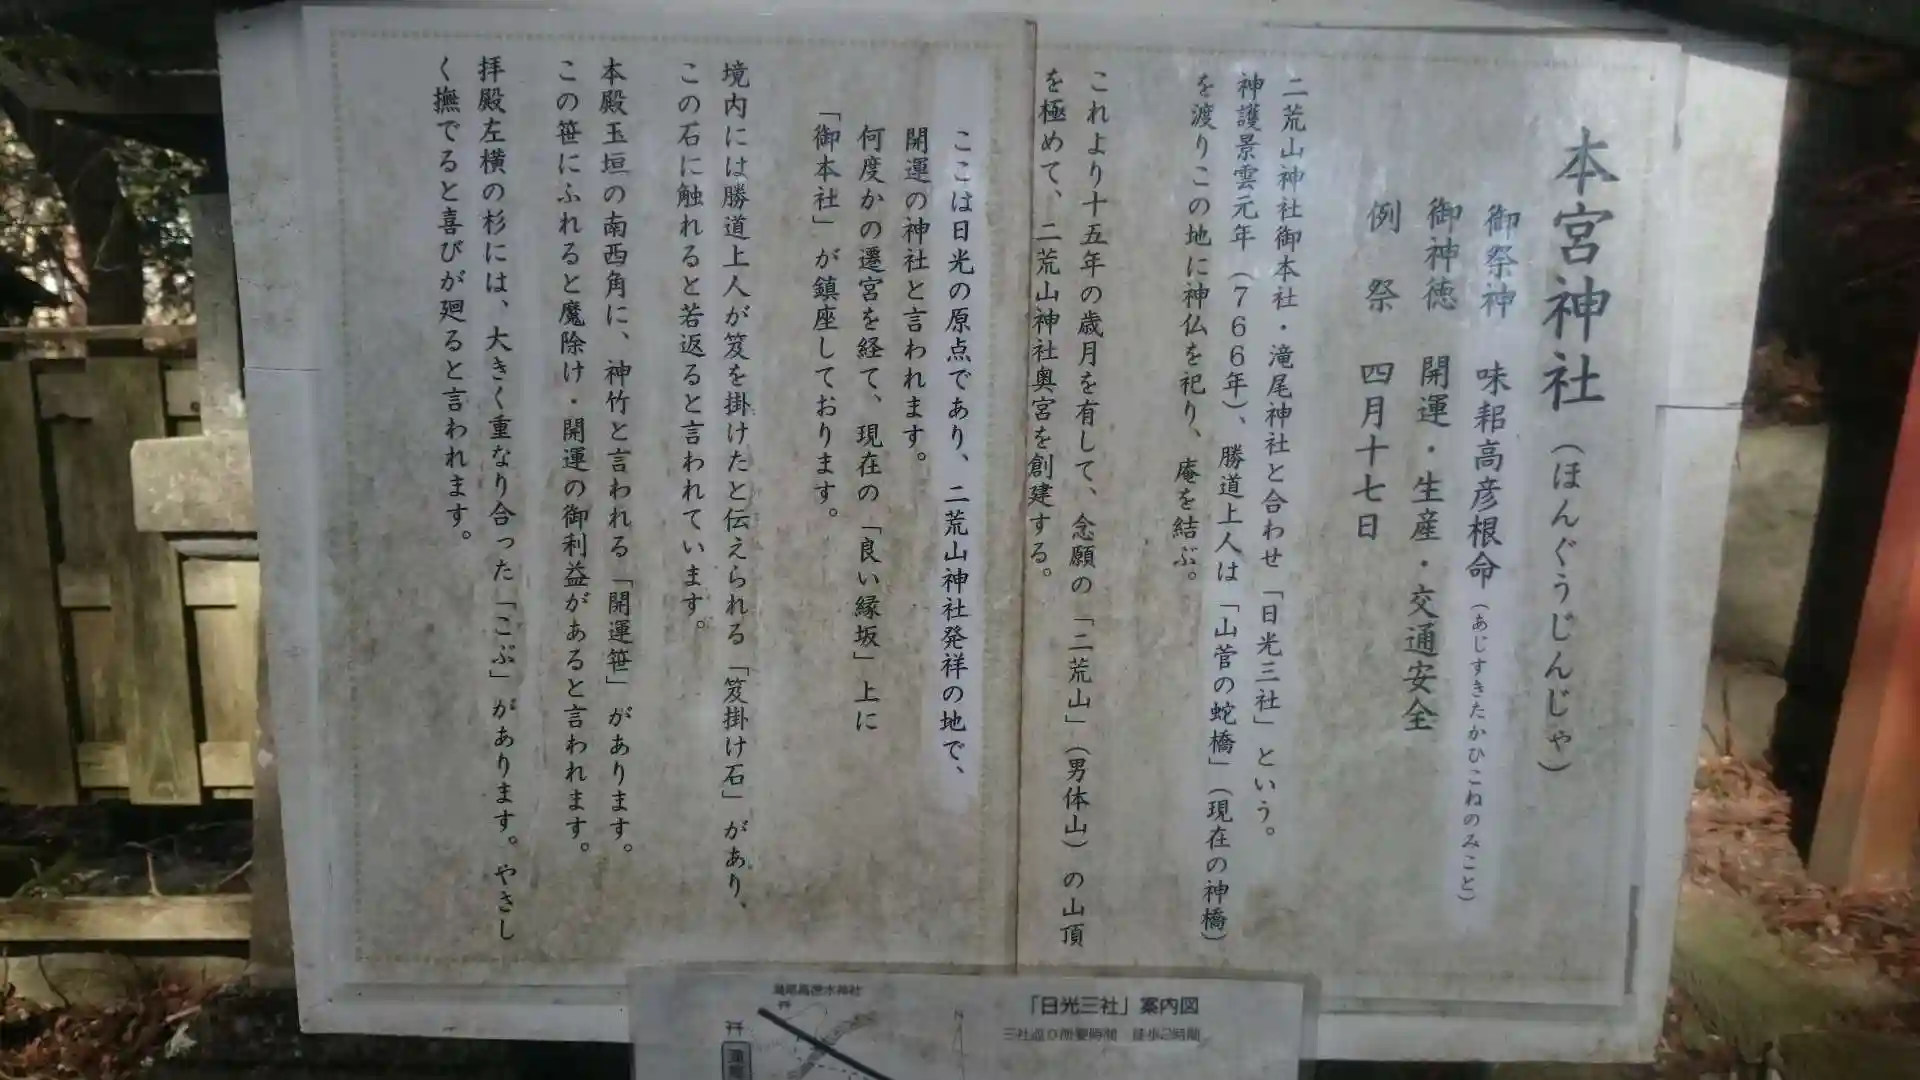 本宮神社（ほんぐうじんじゃ）
御祭神　味耜高彦根命（あじすきたかひこねのみこと）
御神徳　開運・生産・交通安全
例　祭　四月十七日
二荒山神社御本社・滝尾神社と合わせ「日光三社」という。
神護景雲元年（７６６年）、勝道上人は「山菅の蛇橋」（現在の神橋）
を渡りこの地に神仏を祀り、庵を結ぶ。
これより十五年の歳月を有して、念願の「二荒山」（男体山）の山頂
を極めて、二荒山神社奥宮を創建する。
ここは日光の原点であり、二荒山神社発祥の地で、
開運の神社と言われます。
何度かの遷宮を経て、現在の「良い縁坂」上に
「御本社」が鎮座しております。
境内には勝道上人が笈を掛けたと伝えられる「笈掛け石」があり、
この石に触れると若返ると言われています。
本殿玉垣の南西角に、神竹と言われる「開運笹」があります。
この笹にふれると魔除け・開運の御利益があると言われます。
拝殿左横の杉には、大きく重なり合った「こぶ」があります。やさし
く撫でると喜びが廻ると言われます。
「日光三社」案内図
三社巡り所要時間　徒歩2時間
N